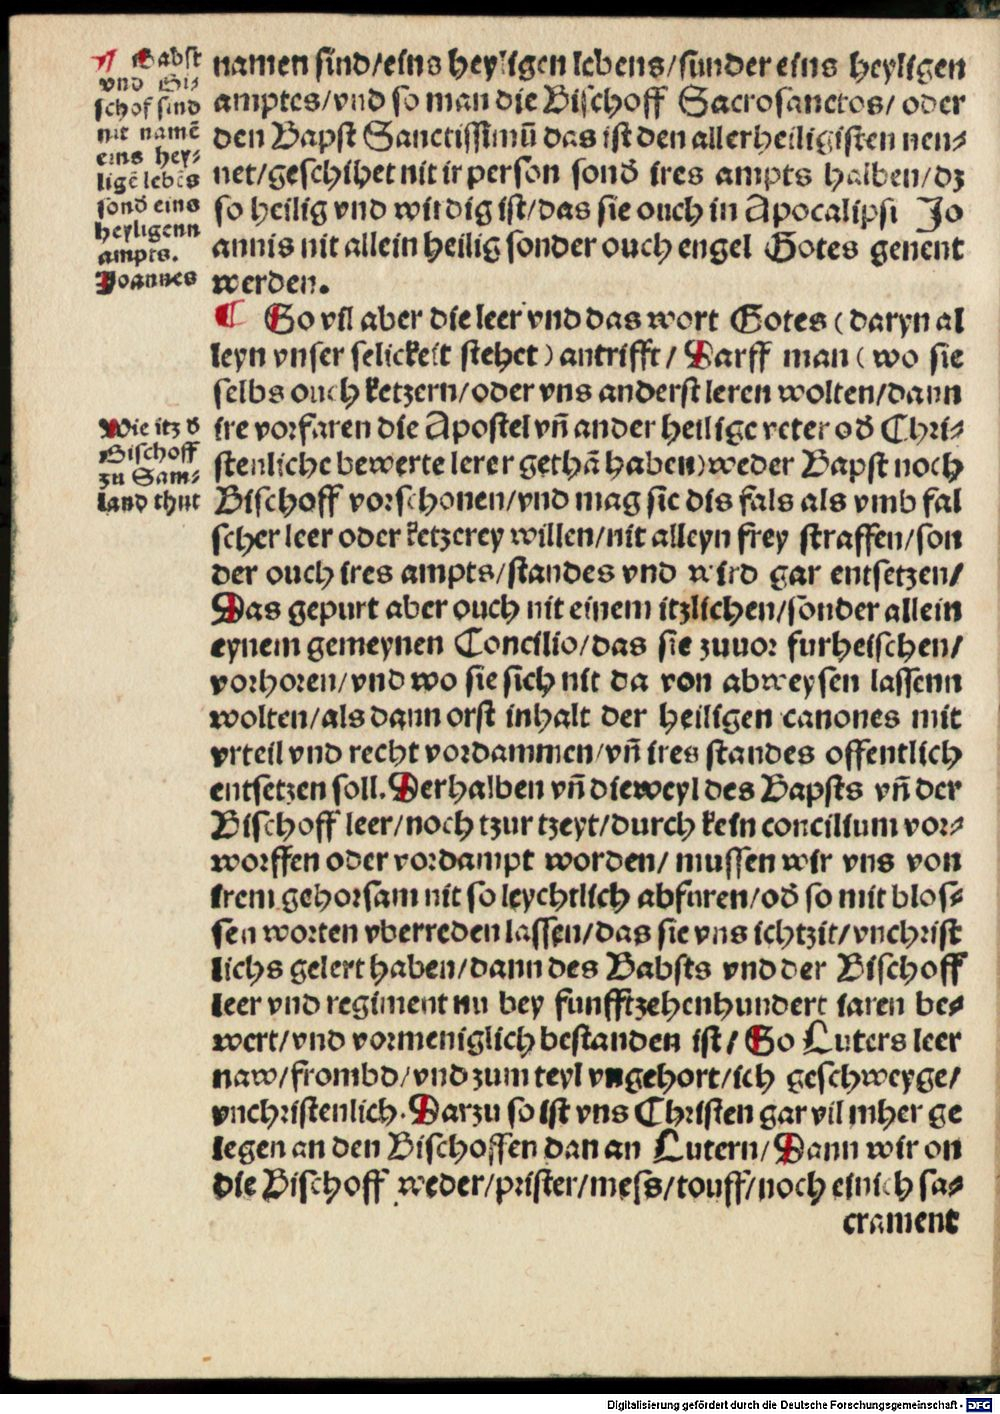 Babst
vnd Bi-
schof sind
nit namē
eins hey-
ligē lebēs
sond̄ eins
heyligenn
ampts.
Joannes
namen sind/eins heyligen lebens/sunder eins heyligen
amptes/vnd so man die Bischoff Sacrosanctos/ oder
den Bapst Sanctissimū das ist den allerheiligisten nen-
net/geschihet nit ir person sond̄ ires ampts halben/dz
so heilig vnd wirdig ist/das sie ouch in Apocalipsi Jo
annis nit allein heilig sonder ouch engel Gotes genent
werden.
¶ So vil aber die leer vnd das wort Gotes (daryn al
leyn vnser selickeit stehet) antrifft/ Darff man (wo sie
selbs ouch ketzern/oder vns anderst leren wolten/dann
ire vorfaren die Apostel vñ ander heilige veter od̄ Chri-
stenliche bewerte lerer gethā haben) weder Bapst noch
Bischoff vorschonen/vnd mag sie dis fals als vmb fal
scher leer oder ketzerey willen/nit alleyn frey straffen/son
der ouch ires ampts/standes vnd wird gar entsetzen/
Das gepurt aber ouch nit einem itzlichen/sonder allein
eynem gemeynen Concilio/das sie zuuor furheischen/
vorhoren/vnd wo sie sich nit da von abweysen lassenn
wolten/als dann orst inhalt der heiligen canones mit
vrteil vnd recht vordammen/vñ ires standes offentlich
entsetzen soll. Derhalben vñ dieweyl des Bapsts vñ der
Bischoff leer/noch tzur tzeyt/durch kein concilium vor-
worffen oder vordampt worden/ mussen wir vns von
irem gehorsam nit so leychtlich abfuren/od̄ so mit blos-
sen worten vberreden lassen/das sie vns ichtzit/vnchrist
lichs gelert haben/dann des Babsts vnd der Bischoff
leer vnd regiment nu bey funfftzehenhundert iaren be-
wert/vnd vormeniglich bestanden ist/ So Luters leer
naw/frombd/vnd zum teyl vngehort/ich geschweyge/
vnchristenlich. Darzu so ist vns Christen gar vil mher ge
legen an den Bischoffen dan an Lutern/ Dann wir on
die Bischoff weder/prister/mess/touff/noch einich sa-
crament
Wie itz d̄
Bischoff
zu Sam-
land thut
Digitalisierung gefördert durch die Deutsche Forschungsgemeinschaft - DFG